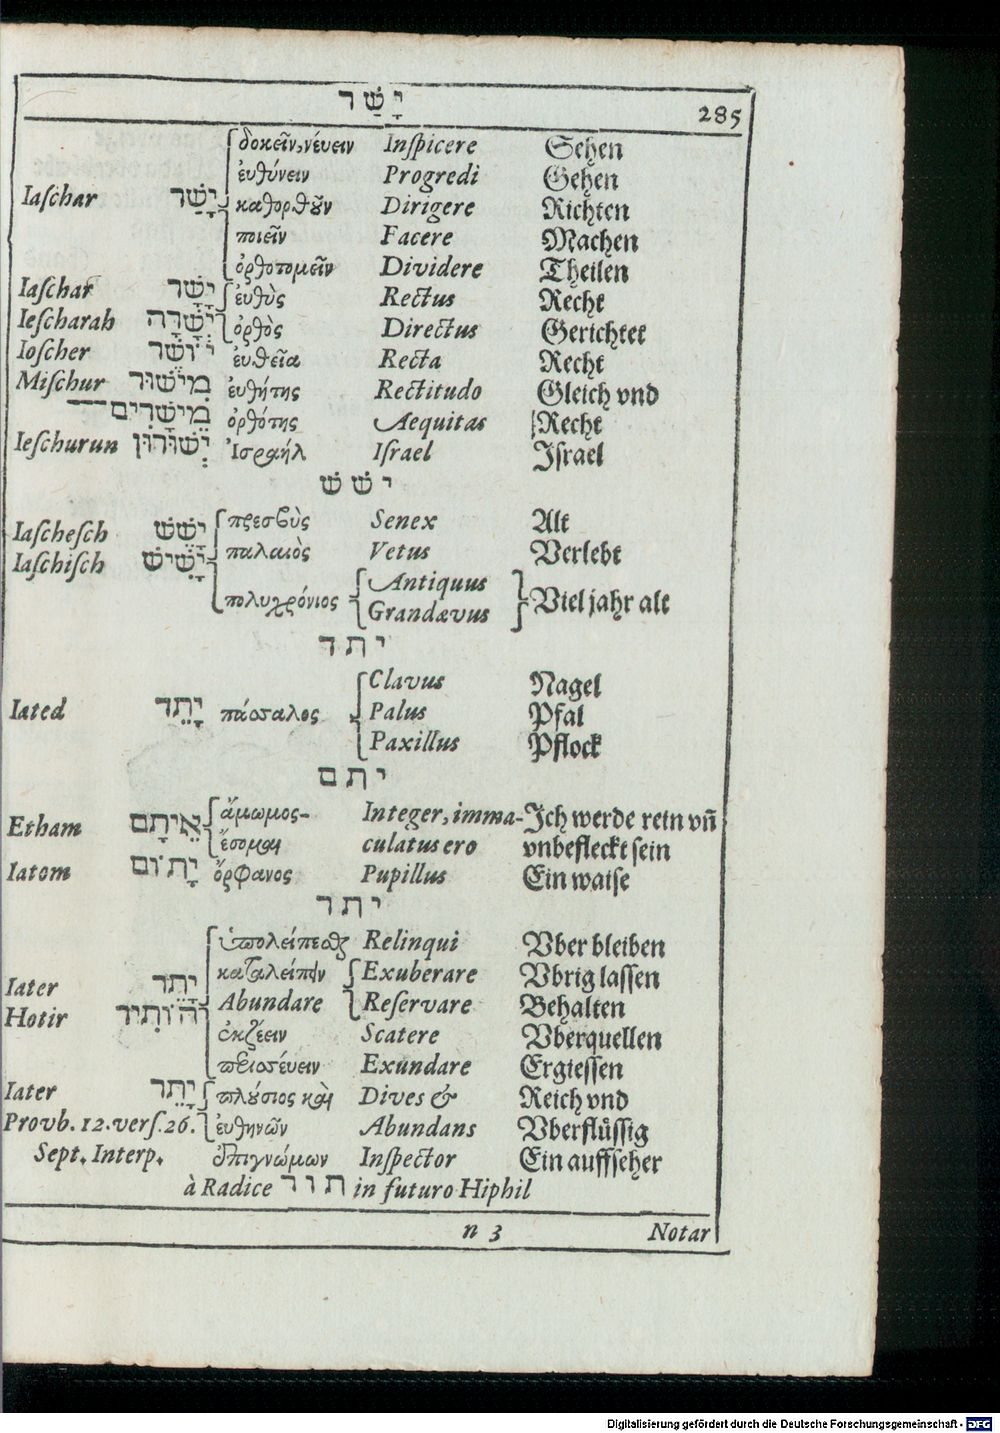 יָשַׁר 285
δοκεῖν, νέυειν Inſpicere Sehen
ἐυθύνειν Progredi Gehen
Iaſchar יָשַׁר καθορθοῦν Dirigere Richten
ποιεῖν Facere Machen
ὀρθοτομεῖν Dividere Theilen
Iaſchar יָשָׁר ἐυθὺς Rectus Recht
Ieſcharah יְשָׁרָה ὀρθὸς Directus Gerichtet
Ioſcher יוֹשֶׁר ἐυθεῖα Recta Recht
Miſchur מִישׁוּר ἐυθήτης Rectitudo Gleich vnd
מֵישָׁרִים ὀρθότης Aequitas Recht
Ieſchurun יְשׁוּרוּן Ἰσραήλ Iſrael Iſrael
ישׁשׁ
Iaſcheſch יָשֵׁשׁ πρεσβὺς Senex Alt
Iaſchiſch יָשִׁישׁ παλαιὸς Vetus Verlebt
πολυχρόνιος Antiquus Viel jahr alt
Grandævus
יתד
Clavus Nagel
Iated יָתֵד πάσσαλος Palus Pfal
Paxillus Pflock
יתם
Etham אֵיתָם ἄμωμος- Integer, imma- Ich werde rein vn̄
ἔσομαι culatus ero vnbefleckt ſein
Iatom יָתוֹם ὄρφανος Pupillus Ein waiſe
יתר
ὑπολείπεσθαι Relinqui Vber bleiben
Iater יָתֵר καταλείπειν Exuberare Vbrig laſſen
Hotir הוֹתִיר Abundare Reſervare Behalten
ἐκζέειν Scatere Vberquellen
περισσέυειν Exundare Ergieſſen
Iater יָתֵר πλούσιος καὶ Dives & Reich vnd
Provb. 12. verſ. 26. ἐυθηνῶν Abundans Vberflüſſig
Sept. Interp. ἐπιγνώμων Inſpector Ein auffſeher
à Radice תור in futuro Hiphil
n 3 Notar
Digitalisierung gefördert durch die Deutsche Forschungsgemeinschaft - DFG